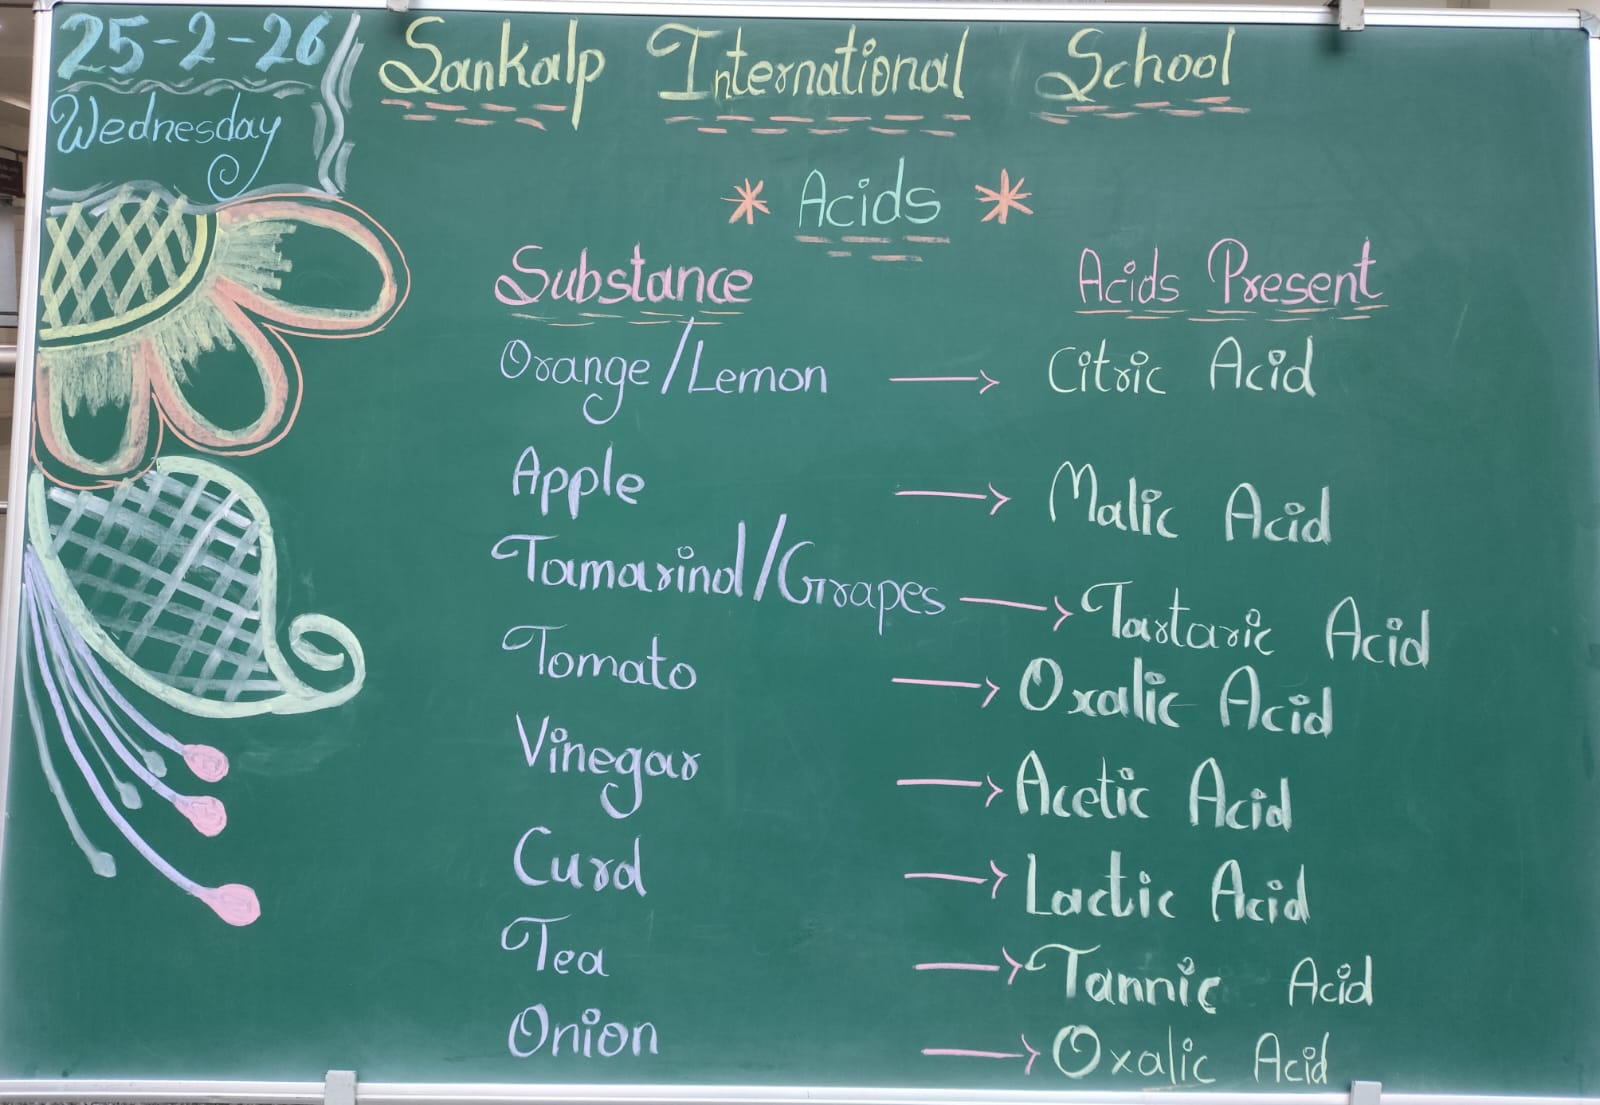 25-2-26
Wednesday
Sankalp International School
* Acids *
Substance Acids Present
Orange/Lemon → Citric Acid
Apple → Malic Acid
Tamarind/Grapes → Tartaric Acid
Tomato → Oxalic Acid
Vinegar → Acetic Acid
Curd → Lactic Acid
Tea → Tannic Acid
Onion → Oxalic Acid